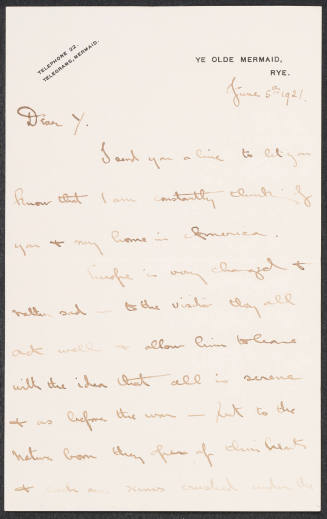 TELEPHONE 22.
TELEGRAMS, MERMAID.
YE OLDE MERMAID,
RYE.
June 5th 1921.
Dear Y.
I send you a line to let you
know that I am constantly thinking of
you & my home in America.
Europe is very changed &
rather sad — to the visitor they all
act well & allow him to leave
with the idea that all is serene
& as before the war — but to the
native born they open up their hearts
& crushed under the